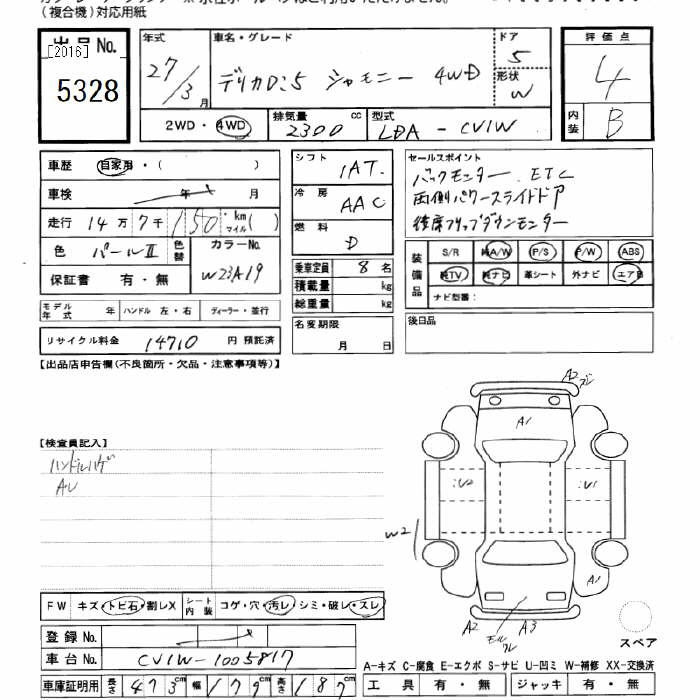 (複合機)対応用紙
出品 No.
[2016]
5328
年式
27/3月
車名・グレード
デリカD:5 シャモニー 4WD
ドア
5
形状
W
評価点
4
内装
B
2WD・4WD
排気量
2300 cc
型式
LDA - CV1W
車歴 自家用・( )
車検 年 月
走行 14万7千150 km マイル( )
色 パールII
色替
カラーNo.
W23A19
保証書 有・無
シフト
1AT.
冷房
AAC
燃料
D
セールスポイント
バックモニター ETC
両側パワースライドドア
後席フリップダウンモニター
装備品
S/R 純A/W P/S P/W ABS
純TV 純ナビ 革シート 外ナビ エアB
ナビ型番:
乗車定員 8名
積載量 kg
総重量 kg
モデル年式 年 ハンドル 左・右 ディーラー・並行
リサイクル料金 14710 円 預託済
名変期限
月 日
後日品
【出品店申告欄(不良箇所・欠品・注意事項等)】
【検査員記入】
ハンドルハゲ
AU
A2 ズレ
A1
:U2
:U1
W2
A1
A2
モール
ズレ
A3
スペア
FW キズ・トビ石・割レX
シート内装 コゲ・穴・汚レ・シミ・破レ・スレ
登録 No.
車台 No. CV1W-1005817
A-キズ C-腐食 E-エクボ S-サビ U-凹ミ W-補修 XX-交換済
車庫証明用 長さ 473cm 幅 179cm 高さ 187cm
工具 有・無 ジャッキ 有・無